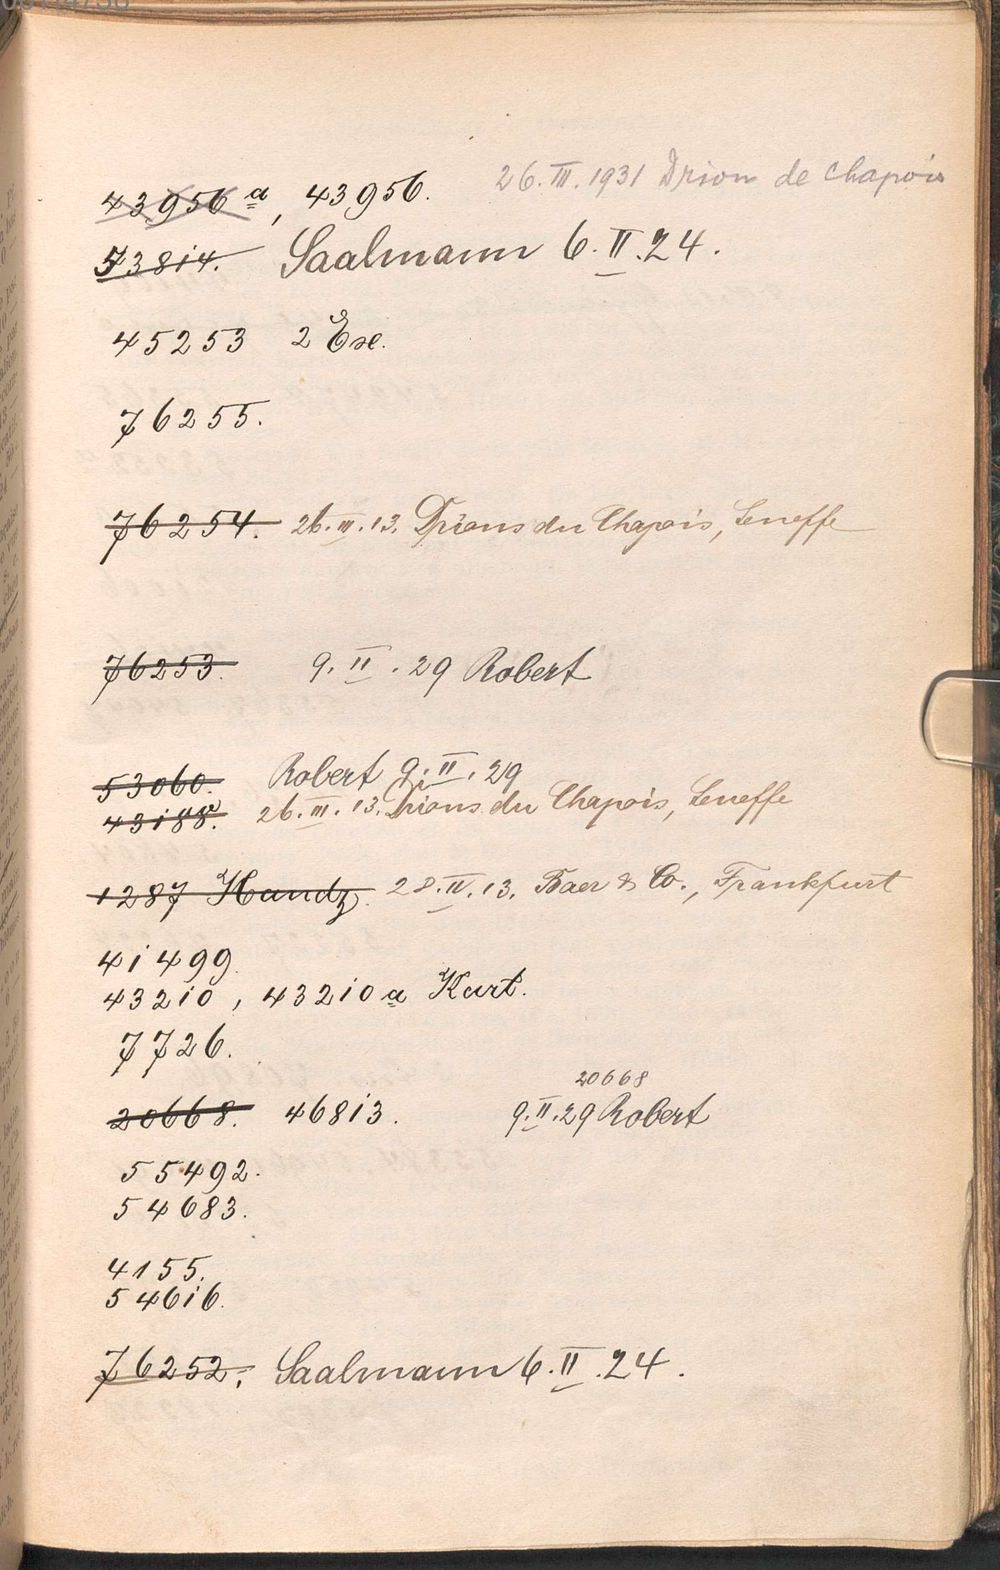 43956 a, 43956. 26. III. 1931 Drion de Chapois
53814. Saalmann 6. II. 24.
45253 2 Exe.
76255.
76254. 26. III. 13. Drions du Chapois, Seneffe
76253. 9. II. 29 Robert
53060. Robert 9. II. 29
43188. 26. III. 13. Drions du Chapois, Seneffe
1287 Handz. 28. II. 13. Baer & Co., Frankfurt
41499.
43210, 43210 a Kart.
7726.
20668
20668. 46813. 9. II. 29 Robert
55492.
54683.
4155.
54616.
76252. Saalmann 6. II. 24.